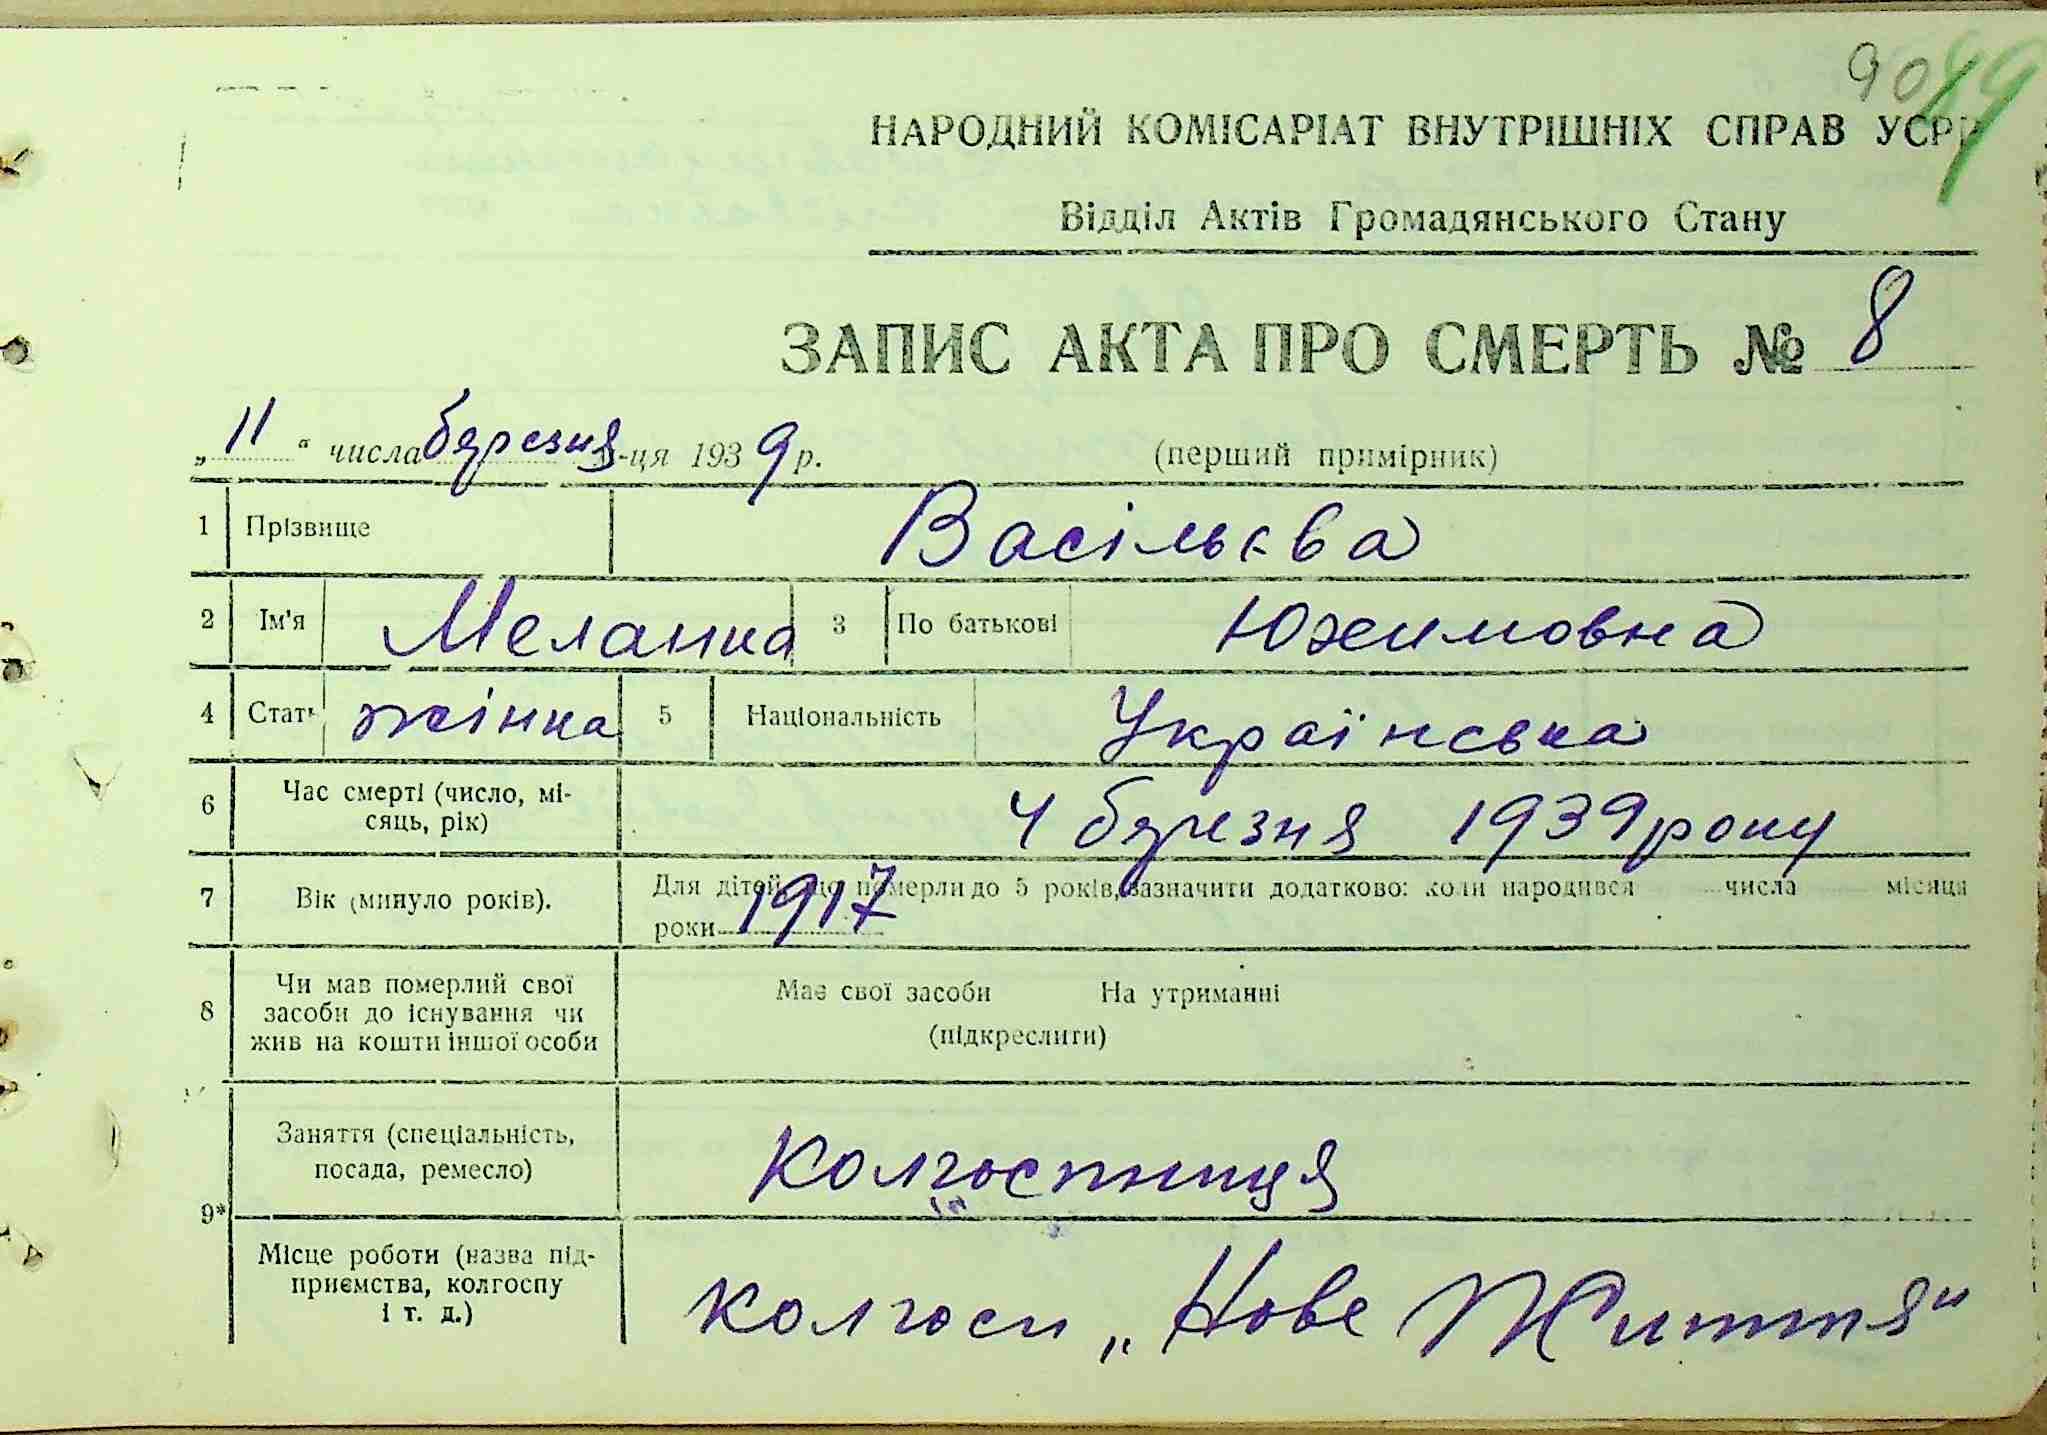 90 89
НАРОДНИЙ КОМІСАРІАТ ВНУТРІШНІХ СПРАВ УСРР
Відділ Актів Громадянського Стану
ЗАПИС АКТА ПРО СМЕРТЬ № 8
„ 11 “ числа березня м-ця 1939 р. (перший примірник)
1 Прізвище Васільєва
2 Ім'я Меланка 3 По батькові Юхимовна
4 Стать жінка 5 Національність Українська
6 Час смерті (число, мі-
сяць, рік) 4 березня 1939 року
7 Вік (минуло років). Для дітей, що померли до 5 років, зазначити додатково: коли народився числа місяця
роки 1917
8 Чи мав померлий свої
засоби до існування чи
жив на кошти іншої особи
Має свої засоби На утриманні
(підкреслити)
9* Заняття (спеціальність,
посада, ремесло) Колгоспниця
Місце роботи (назва під-
приємства, колгоспу
і т. д.) колгосп „Нове Життя"